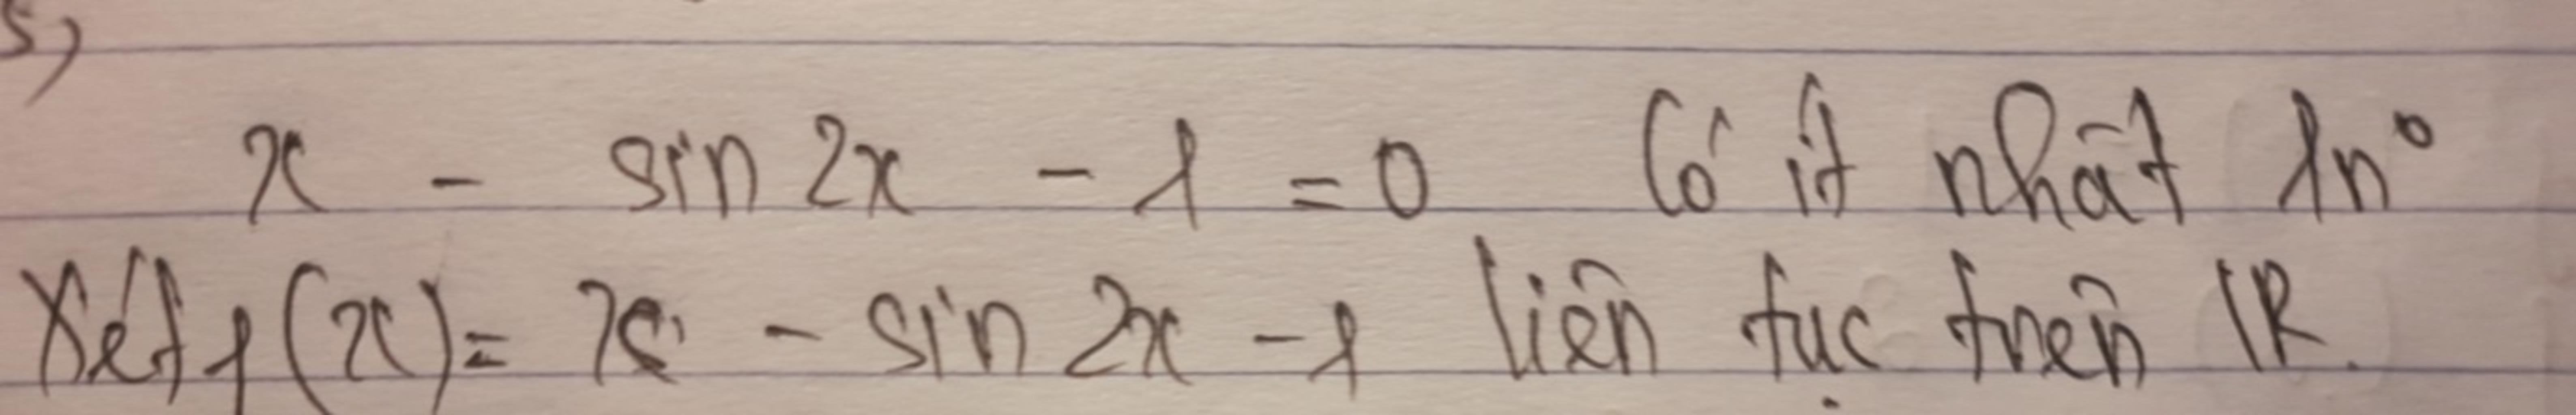 5)
x - sin 2x - 1 = 0 Có ít nhất 1n°
Xét f(x) = x - sin 2x - 1 liên tục trên IR.